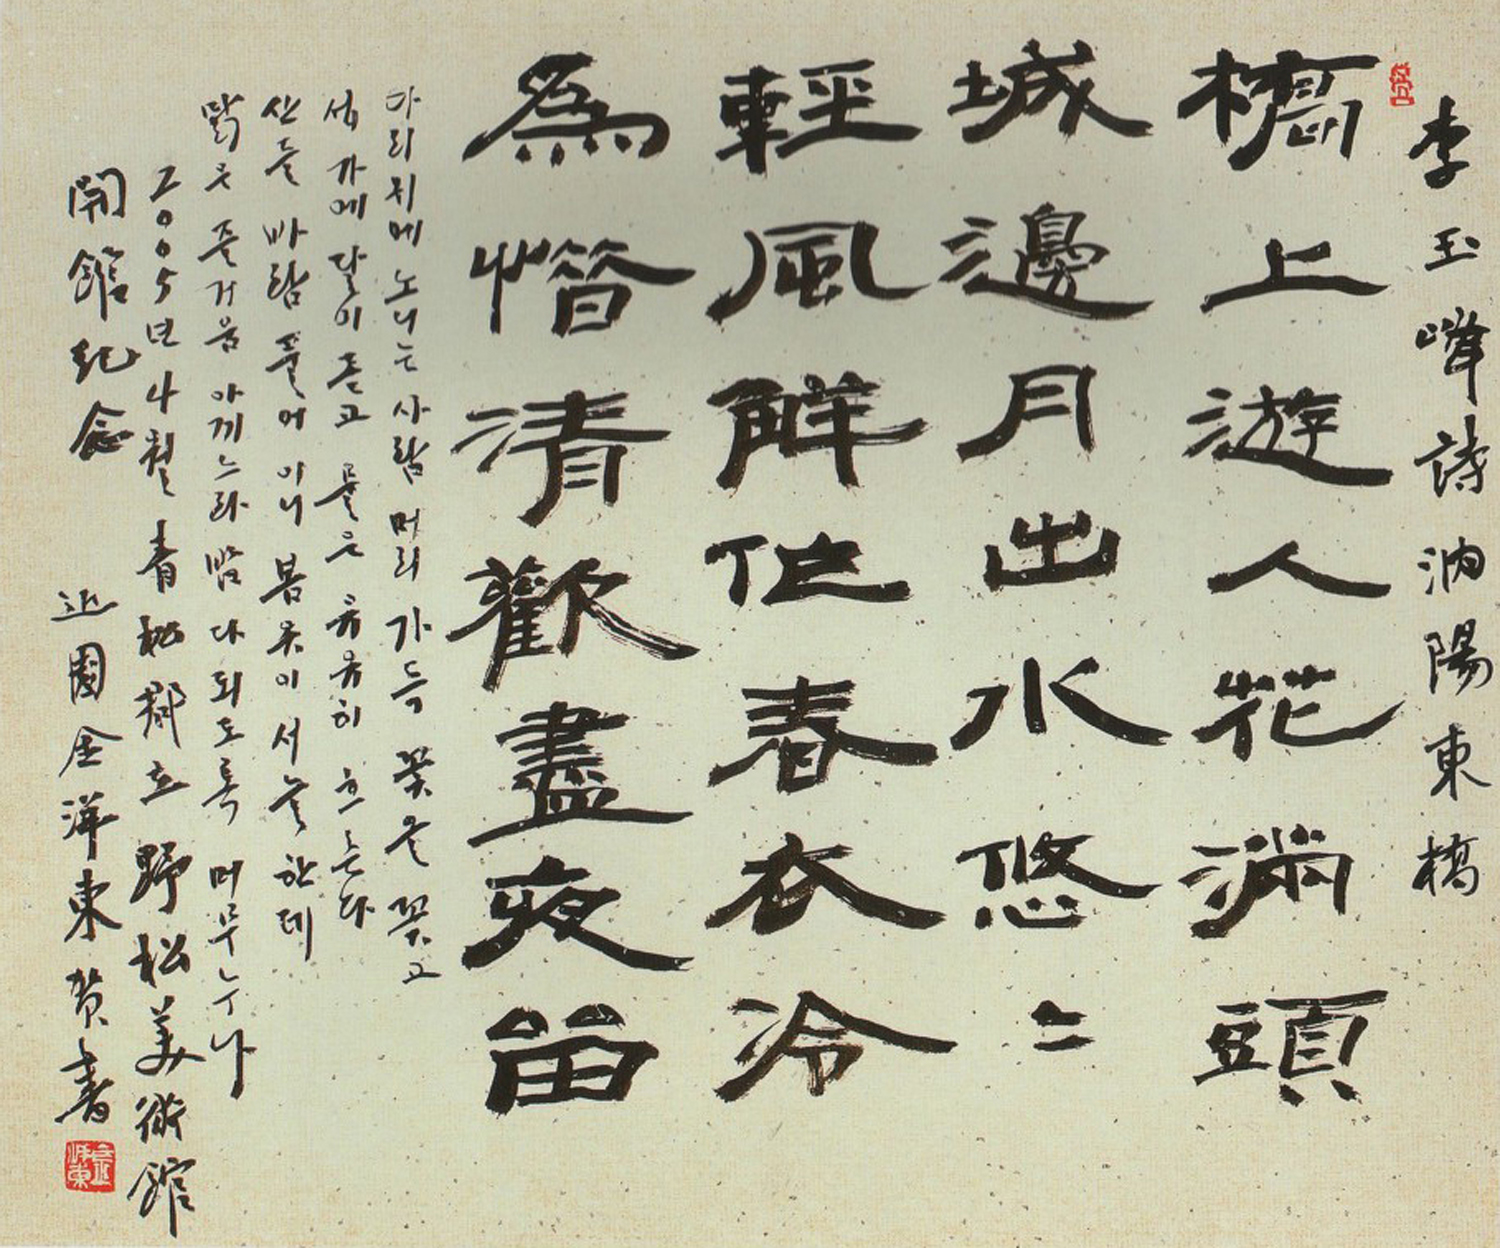 李玉峰詩 汭陽東橋
橋上遊人花滿頭
城邊月出水悠〻
輕風解作春衣冷
爲惜清歡盡夜留
다리위에 노니는 사람 머리 가득 꽃을 꽂고
성 가에 달이 뜨고 물은 유유히 흐른다
산들 바람 풀어 이니 봄옷이 서늘한데
맑은 즐거움 아끼느라 밤 다 되도록 머무누나
二〇〇5년 사월 靑松郡立 野松美術館
開館紀念 近園金洋東賀書